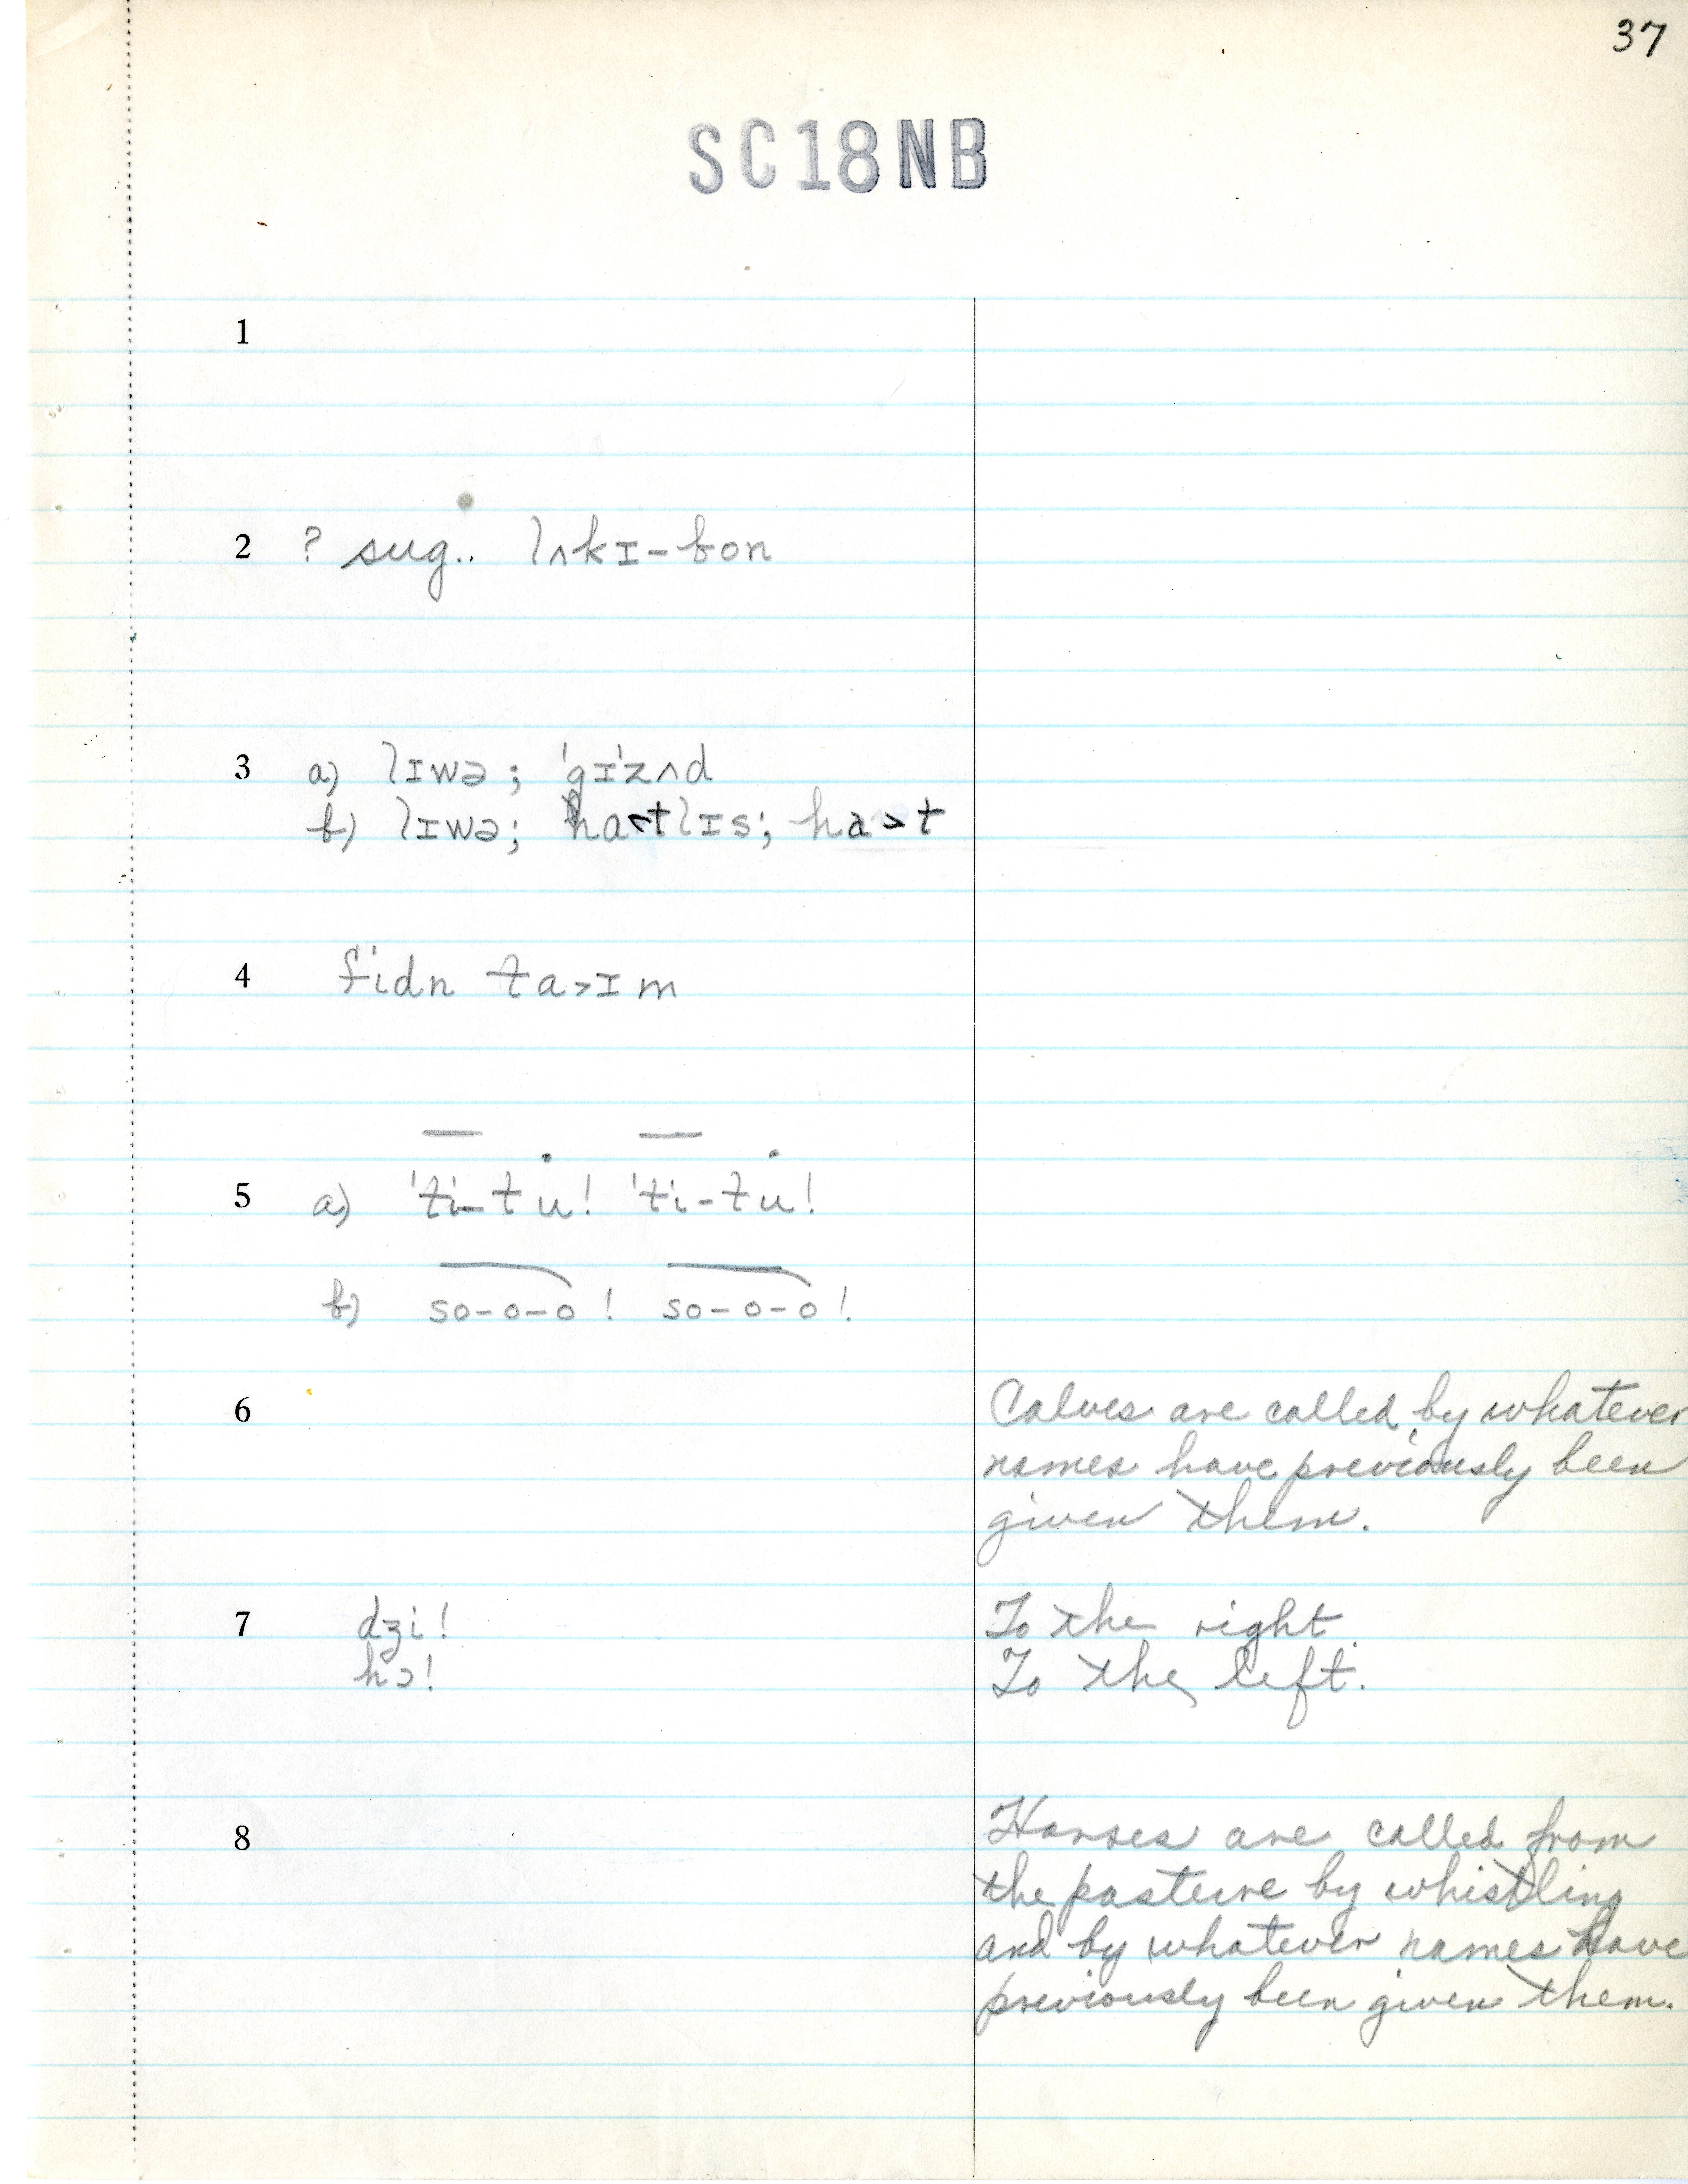 37
SC18NB
1
2 ? sug.. lʌkɪ-bon
3 a) lɪwə; 'gɪ'zʌd
b) lɪwə; ha˂tlɪs; ha˃t
4 fidn ta˃ɪm
5 a) 'ti-tu! 'ti-tu!
b) so-o-o! so-o-o!
6 Calves are called by whatever
names have previously been
given them.
7 dʒi! To the right.
hɔ! To the left.
8 Horses are called from
the pasture by whistling
and by whatever names have
previously been given them.